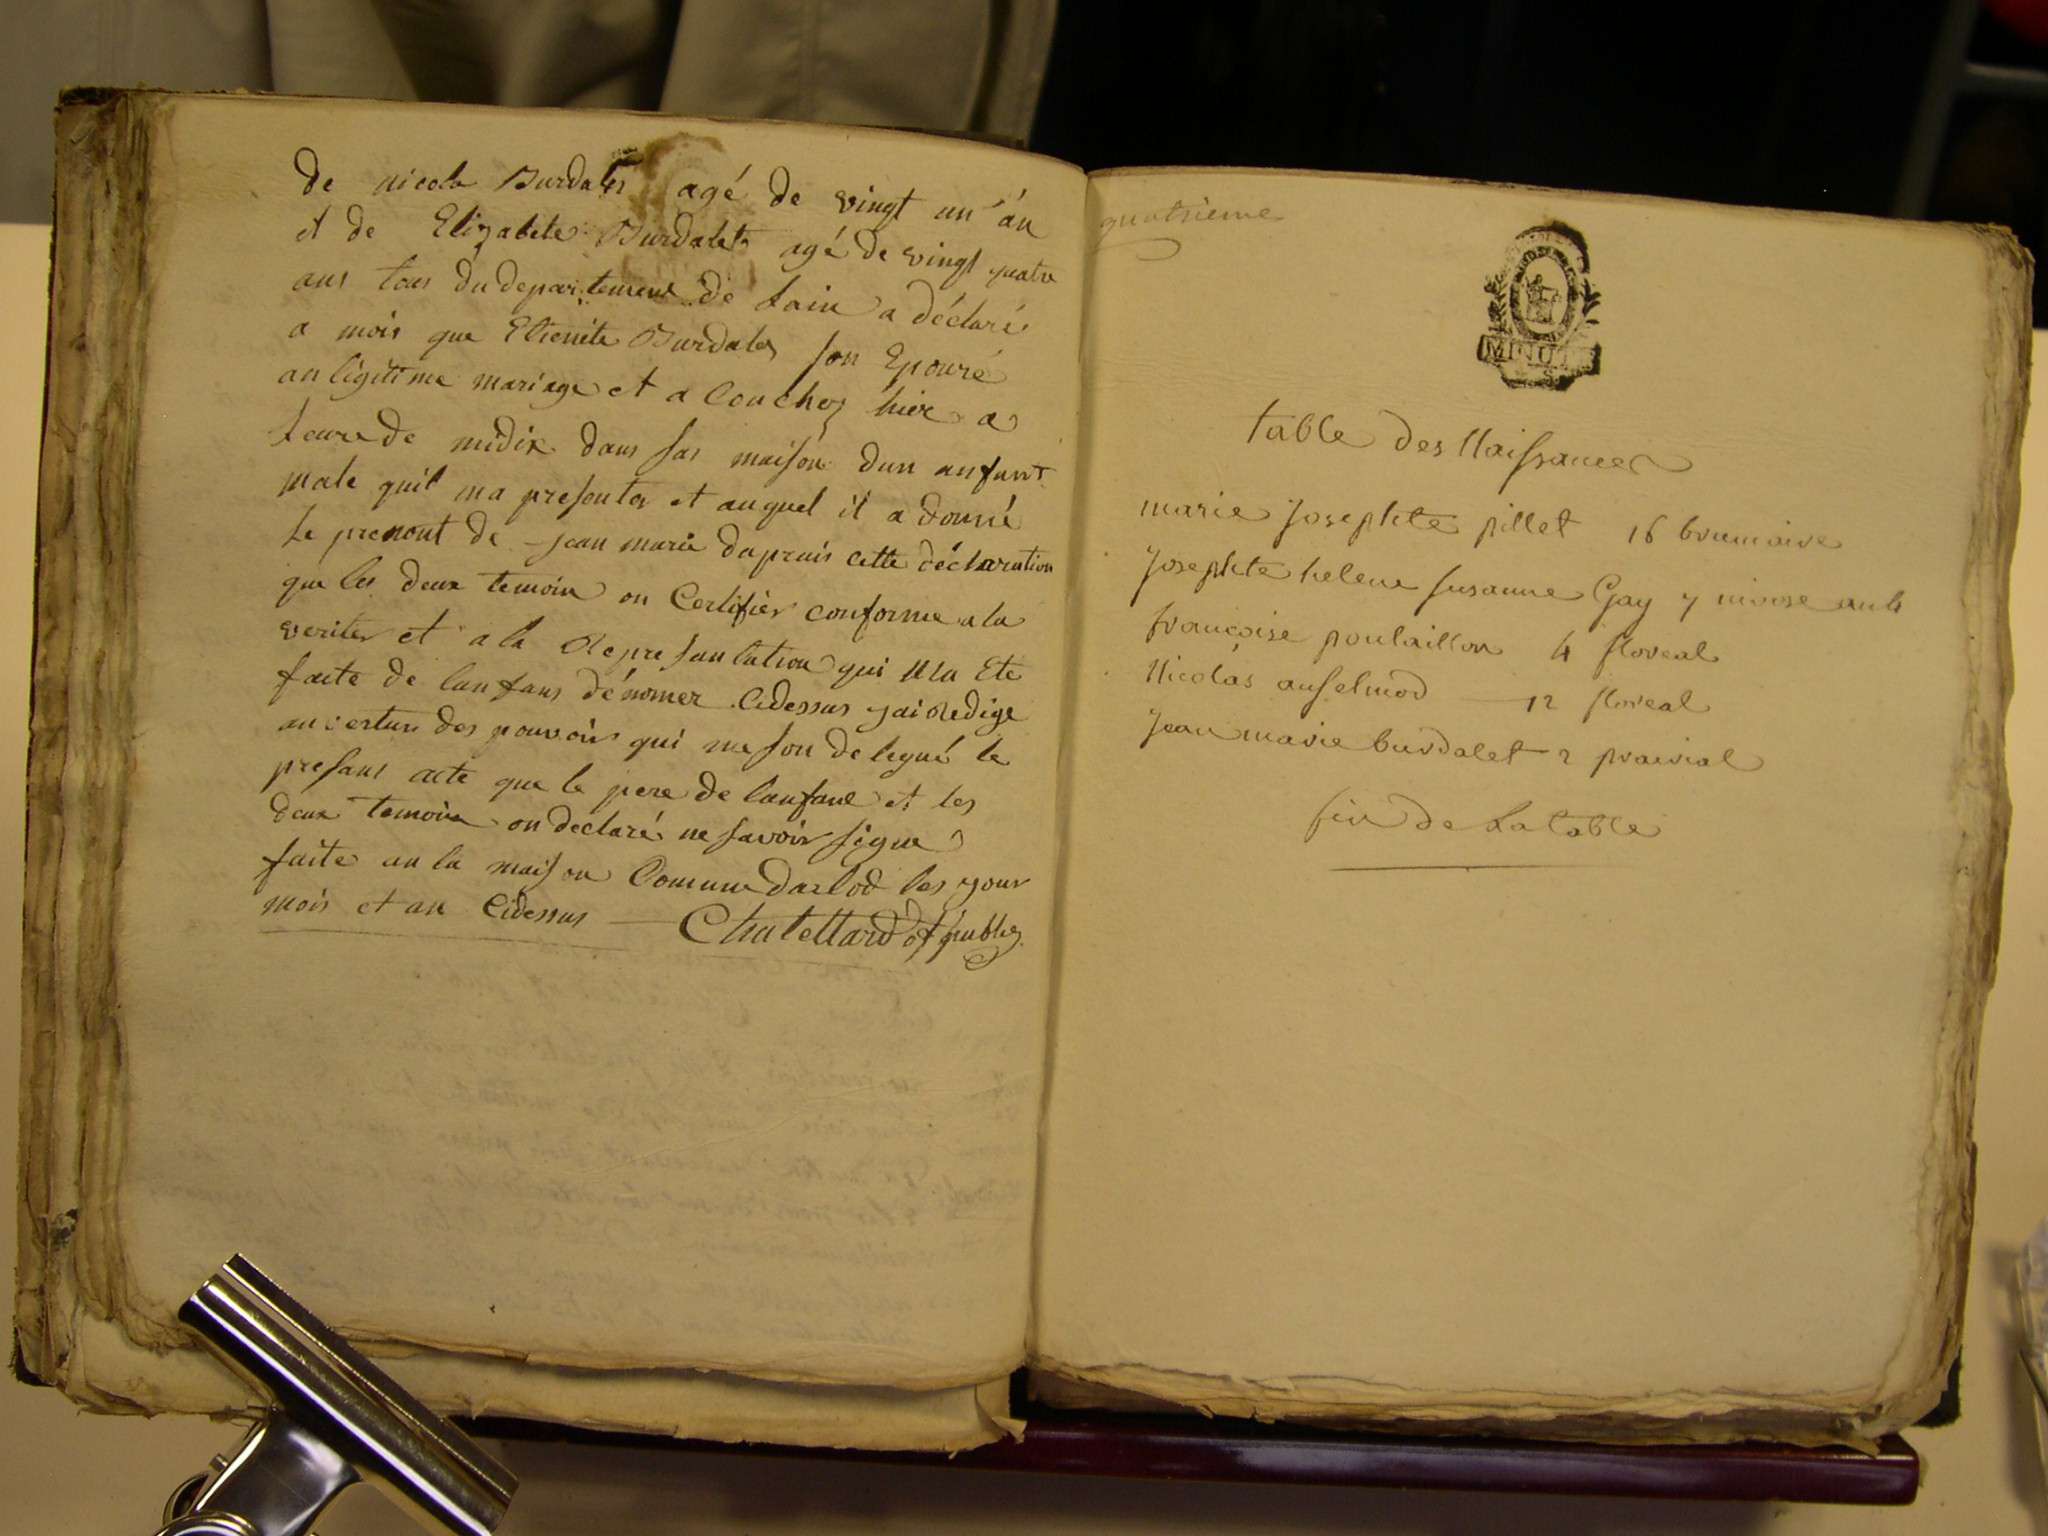 de nicola Burdalet agé de vingt un án
et de Elizabete Burdalet agé de vingt quatre
ans tous du departement de Lain a déclaré
a mois que Etienete Burdalet son Epousé
an ligitime mariage et a Couchez hier a
Leure de midix dans sas maison dun anfant
male quil ma presenter et auquel il a donné
Le prenont de jean marie daprais cette déclaration
que les deux temoin on Certifier conforme a la
veriter et a la Representation qui Ma Ete
faite de lanfans dénomer Cidessus jai Redige
an vertus des pouvoirs qui me son delegué le
presans acte que le pere de lanfant et les
deux temoin on declaré ne savoir signe
faite an la maison Comune darlod les jour
mois et an Cidessus Chatellard of public
quatrieme
MINUTE
table des Naissances
marie josephte pillet 16 brumaire
josephte helene susanne Gay 7 nivose an 4
françoise poulaillon 4 floreal
Nicolas anselmod 12 floreal
jean marie burdalet 2 prairial
fin de La table